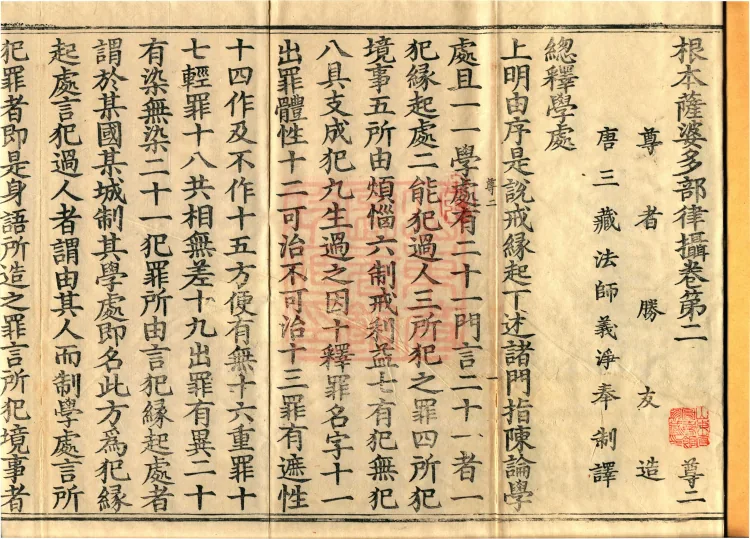 根本薩婆多部律攝卷第二 尊二
尊者勝友造
唐三藏法師義淨奉制譯
總釋學處
上明由序是說戒緣起下述諸門指陳論學
尊二 一
處且一一學處有二十一門言二十一者一
犯緣起處二能犯過人三所犯之罪四所犯
境事五所由煩惱六制戒利益七有犯無犯
八具支成犯九生過之因十釋罪名字十一
出罪體性十二可治不可治十三罪有遮性
十四作及不作十五方便有無十六重罪十
七輕罪十八共相無差十九出罪有異二十
有染無染二十一犯罪所由言犯緣起處者
謂於某國某城制其學處即名此方為犯緣
起處言犯過人者謂由其人而制學處言所
犯罪者即是身語所造之罪言所犯境事者